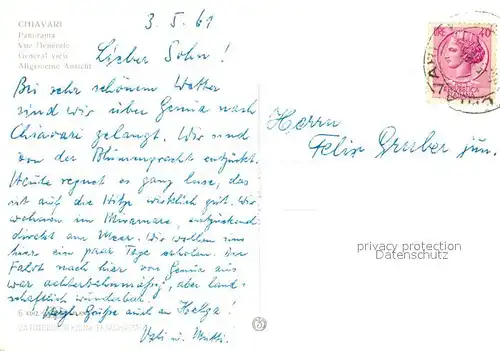 CHIAVARI
Panorama
Vue Générale
General view
Allgemeine Ansicht
3. 5. 61
Lieber Sohn!
Bei sehr schönem Wetter
sind wir über Genua nach
Chiavari gelangt. Wir sind
von der Blumenpracht entzückt.
Heute regnet es ganz leise, das
ist auf die Hitze wirklich gut. Wir
wohnen im Miramare, entzückend
direkt am Meer. Wir wollen uns
hier ein paar Tage erholen. Die
Fahrt nach hier von Genua aus
war achterbahnmäßig, aber land-
schaftlich wunderbar.
Herzl. Grüße auch an Helga!
Vati u. Mutti.
LIRE 40
Herrn
Felix Gruber jun.
privacy protection
Datenschutz